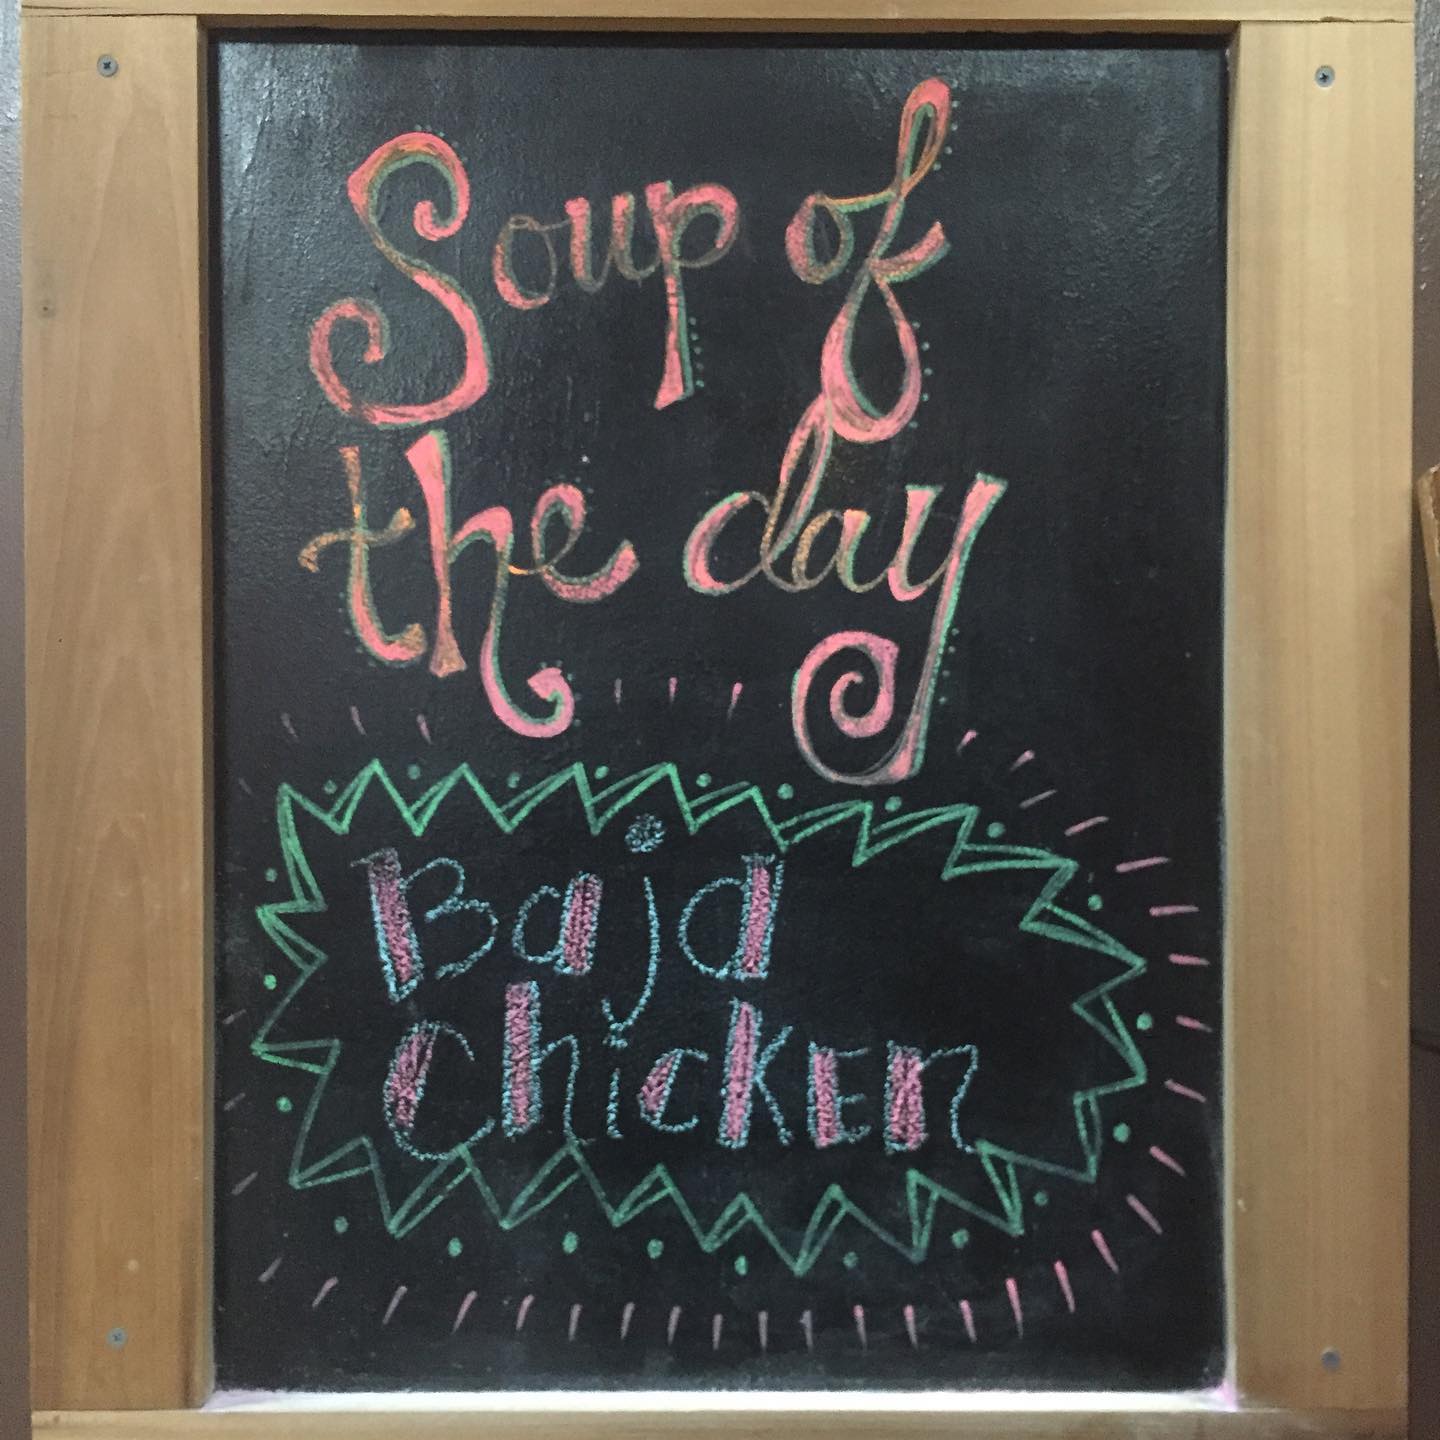 Soup of
the day
Baja
ChicKEn